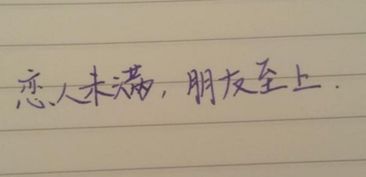 恋人未满，朋友至上.